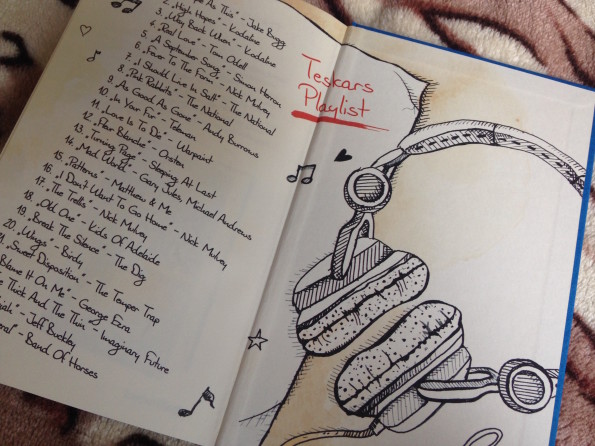 As This“ - Jake Bugg
2. „High Hopes“ - Kodaline
3. „Way Back When“ - Kodaline
4. „Real Love“ - Tom Odell
5. „A September Song“ - Simon Herron
6. „Fever To The Form“ - Nick Mulvey
7. „I Should Live In Salt“ - The National
8. „Pink Rabbits“ - The National
9. „As Good As Gone“ - Andy Burrows
10. „In Your Fur“ - Talman
11. „Love Is To Die“ - Warpaint
12. „Fleur Blanche“ - Orsten
13. „Turning Page“ - Sleeping At Last
14. „Mad World“ - Gary Jules, Michael Andrews
15. „Patterns“ - Matthew & Me
16. „I Don't Want To Go Home“ - Nick Mulvey
17. „The Trellis“ - Nick Mulvey
18. „Old One“ - Kids Of Adelaide
19. „Break The Silence“ - The Dig
20. „Wings“ - Birdy
„Sweet Disposition“ - The Temper Trap
Blame It On Me“ - George Ezra
Thick And The Thin“ - Imaginary Future
jah“ - Jeff Buckley
eral“ - Band Of Horses
Teskars
Playlist